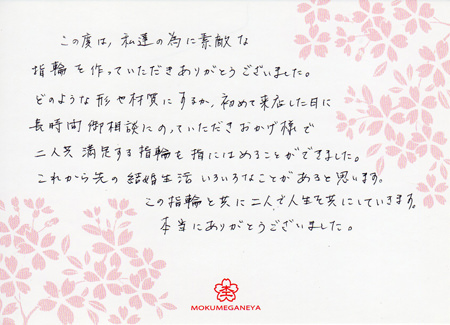 この度は、私達の為に素敵な
指輪を作っていただきありがとうございました。
どのような形や材質にするか、初めて来店した日に
長時間御相談にのっていただきおかげ様で
二人共満足する指輪を指にはめることができました。
これから先の結婚生活いろいろなことがあると思います。
この指輪と共に二人で人生を共にしていきます。
本当にありがとうございました。
MOKUMEGANEYA